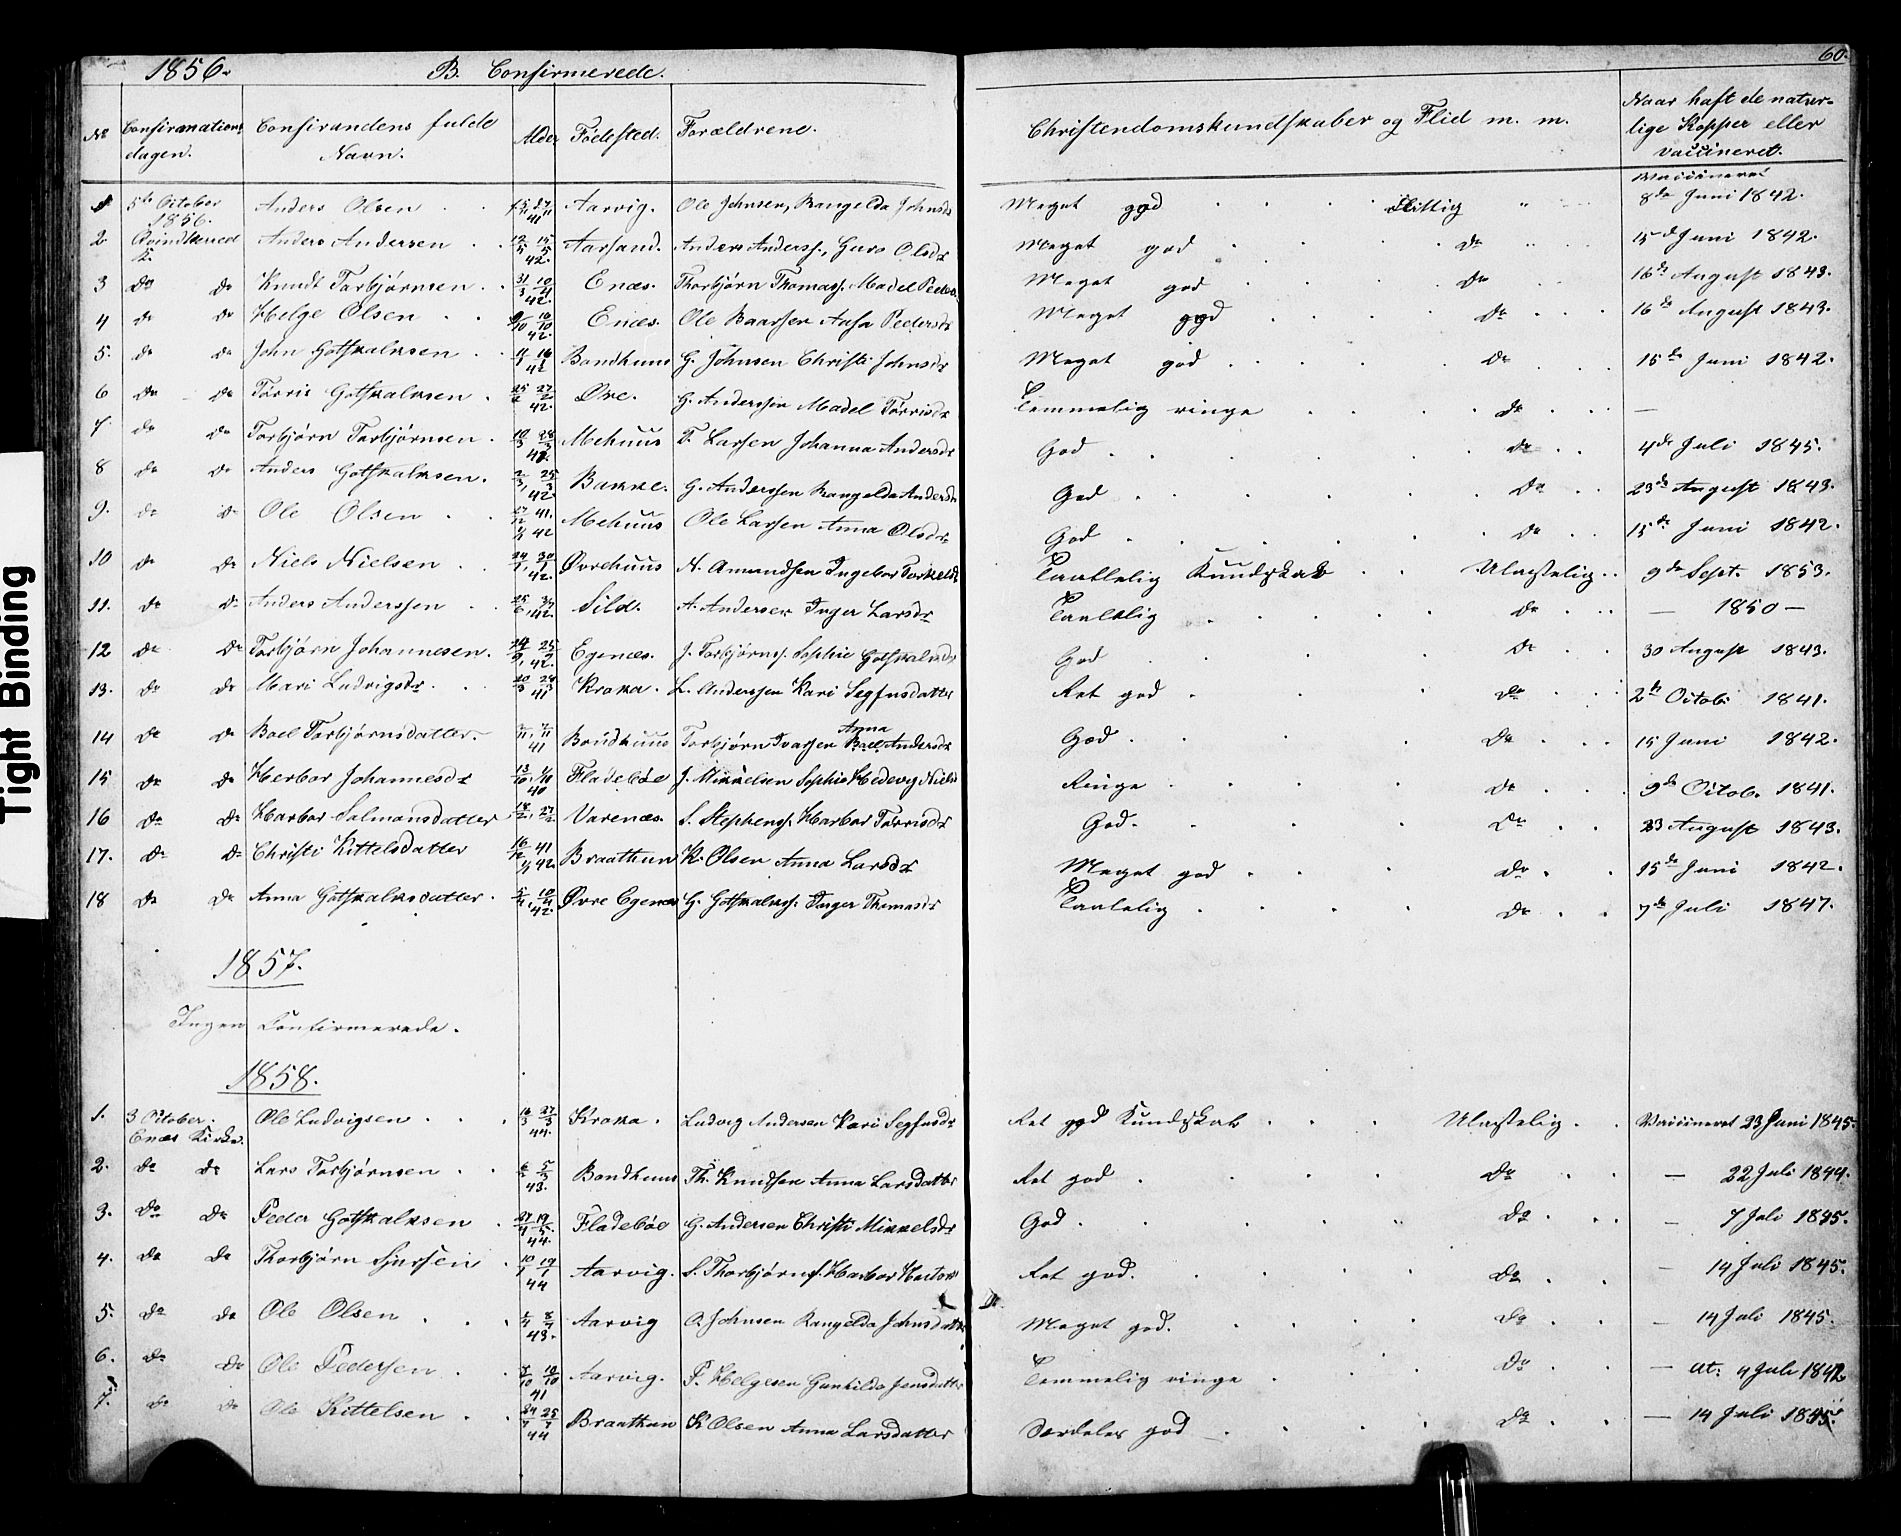 1856. B. Confirmerede.
60.
No Confirmations dagen. Confirandens fulde Navn. Alder Födested. Forældrene. Christendomskundskaber og Flid m. m. Naar haft de naturlige Kopper eller vaccineret.
1 5te October 1856. Anders Olsen 41 Aarvig. Ole Johnsen, Rangelda Johnsdr Meget god Flittig " Vaccineret 8de Juni 1842.
2 Qvindherred K. Anders Andersen 12/5 15/5 42. Aarsand. Anders Anderss., Guro Olsdr Meget god do 15d Juni 1842.
3 do do Knudt Torbjørnsen 31/3 10/4 42. Enæs. Thorbjørn Thomass. Madel Peders. Meget god do 16de August 1843.
4 do do Helge Olsen 9/10 16/10 42. Enæs. Ole Baarsen Aasa Pedersdr Meget god do 16de August 1843.
5. do do John Gotskalksen 42 Bondhuus G. Johnsen Christi Johnsdr Meget god do 15de Juni 1842.
6 do do Tørris Gotskalksen 25/2 27/2 42. Øvre. G. Anderssen Madel Tørrisdr Temmelig ringe do —
7 do do Torbjørn Torbjørnsen 10/3 28/3 42. Mehuus T. Larsen Johanna Andersdr God do 4de Juli 1845.
8 do do Anders Gotskalksen. 2/3, 25/3 42. Bakke. G. Anderssen Rangelda Andersd God do 23de August 1843.
9. do do Ole Olsen 27/12 41. 1/1 42 Mehuus Ole Larsen Anna Olsdr God do 15de Juni 1842.
10 do do Niels Nielsen 42. Øvrehuus N. Amundsen Ingebor Torkelds Taallelig Kundskab Ulastelig 9de Sept. 1853.
11. do do Anders Anderssen 42. Sild. A. Andersen Inger Larsdr Taallelig do — 1850 —
12 do do Torbjørn Johannesen. 24/9, 25/9 42. Egenæs. J. Torbjørns. Sophie Gotskalksdr God do 30 August 1843.
13. do do Mari Ludvigsdr 20/3 28/3 41 Kroka. L. Anderssen Kari Segfusdatter Ret god do 2de Octob. 1841.
14 do do Boel Torbjørnsdatter. 2/11, 7/11 41 Bondhuus Torbjørn Ivarsen Anna Boel Andersdr God do 15 Juni 1842.
15 do do Herbor Johannesdr 40 Fladebøe J. Mikkelsen Sophie Hedevg Nielsd Ringe do 9de Octob. 1841.
16 do do Harbor Salmonsdatter 18/2, 27/2 Varenæs. S. Stephenss. Harbor Tørrisdr God. do 23 August 1843.
17. do do Christi Kittelsdatter 16/12 41 1/1 42 Braathun K. Olsen Anna Larsdr Meget god do 15de Juni 1842.
18 do do Anna Gotskalksdatter 5/4, 10/4 42. Øvre Egenæs G. Gotskalks. Inger Thomasdr Taalelig do 7de Juli 1847.
1857.
Ingen Confirmerede.
1858.
1. 3 October. Enæs Kirke. Ole Ludvigsen 16/3 27/3 44. Kroka. Ludvig Andersen Kari Segfusdr Ret god Kundskab Ulastelig Vaccineret 23 Juni 1845.
2. do do Lars Torbjørnsen 43. Bondhuus Th. Knudsen Anna Larsdatter Ret god do — 22 Juli 1844.
3. do do Peder Gotskalksen 27/4 19/5 44. Fladebøe G. Andersen Christi Mikkelsdr God. do — 7 Juli 1845.
4. do do Thorbjørn Sjursen 10/1 19/1 44 Aarvig. S. Thorbjørns. Harbor Ret god. do — 14 Juli 1845.
5. do do Ole Olsen 43. Aarvig O. Johnsen Rangelda Johnsdatter Meget god. do — 14 Juli 1845.
6. do do Ole Pedersen 7/10 10/10 41 Aarvig. P. Helgesen Gunhilda Jensdatter Temmelig ringe do — At: 4 Juli 1842
7. do do Ole Kittelsen 24/7 25/7 44 Braathun K Olsen Anna Larsdatter Særdeles god do — 14 Juli 1845.
Tight Binding